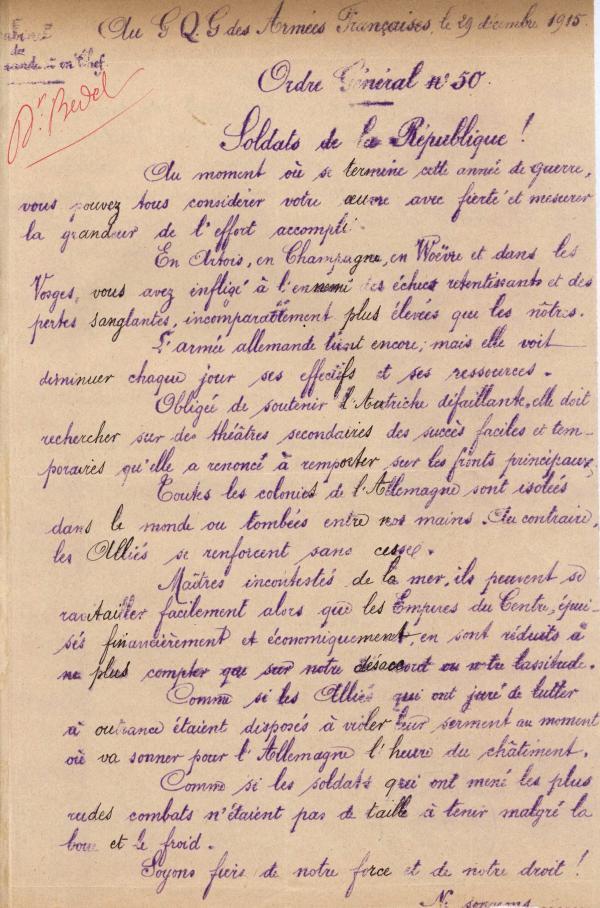 Au G.Q.G des Armées Françaises, le 29 décembre 1915.
de
en Chef.
Dr. Bedel
Ordre Général n° 50.
Soldats de la République !
Au moment où se termine cette année de guerre,
vous pouvez tous considérer votre œuvre avec fierté et mesurer
la grandeur de l'effort accompli.
En Artois, en Champagne, en Woëvre et dans les
Vosges, vous avez infligé à l'ennemi des échecs retentissants et des
pertes sanglantes, incomparablement plus élevées que les nôtres.
L'armée allemande tient encore; mais elle voit
diminuer chaque jour ses effectifs et ses ressources.
Obligée de soutenir l'Autriche défaillante, elle doit
rechercher sur des théâtres secondaires des succès faciles et tem-
poraires qu'elle a renoncé à remporter sur les fronts principaux.
Toutes les colonies de l'Allemagne sont isolées
dans le monde ou tombées entre nos mains. Au contraire,
les Alliés se renforcent sans cesse.
Maîtres incontestés de la mer, ils peuvent se
ravitailler facilement alors que les Empires du Centre, épui-
sés financièrement et économiquement, en sont réduits à
ne plus compter que sur notre désaccord ou notre lassitude.
Comme si les Alliés qui ont juré de lutter
à outrance étaient disposés à violer leur serment au moment
où va sonner pour l'Allemagne l'heure du châtiment.
Comme si les soldats qui ont mené les plus
rudes combats n'étaient pas de taille à tenir malgré la
boue et le froid.
Soyons fiers de notre force et de notre droit !